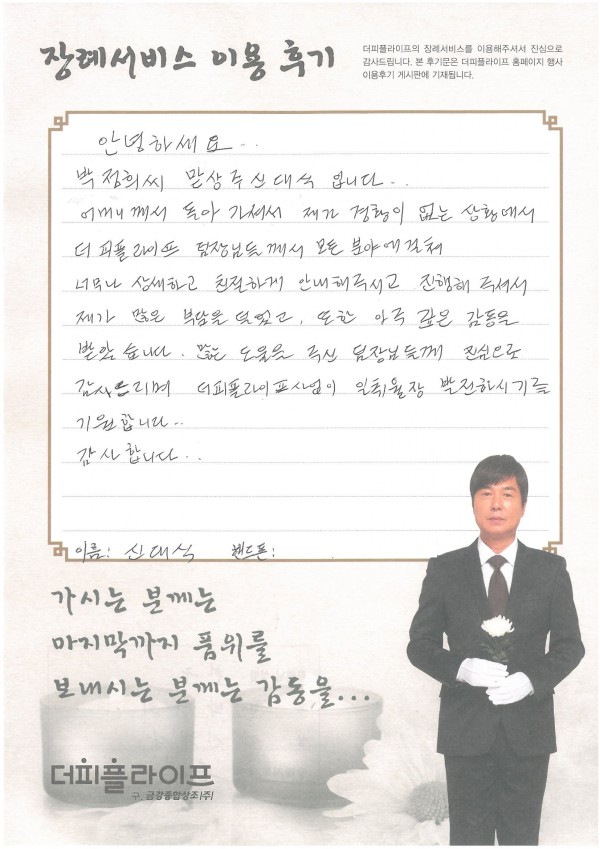 장례서비스 이용 후기
더피플라이프의 장례서비스를 이용해주셔서 진심으로
감사드립니다. 본 후기문은 더피플라이프 홈페이지 행사
이용후기 게시판에 기재됩니다.
안녕하세요..
박정희씨 맏상주 신대식 입니다..
어머니께서 돌아가셔서 제가 경황이 없는 상황에서
더피플라이프 팀장님들께서 모든 분야에 걸쳐
너무나 상세하고 친절하게 안내해주시고 진행해 주셔서
제가 많은 부담을 덜었고, 또한 아주 깊은 감동을
받았습니다. 많은 도움을 주신 팀장님들께 진심으로
감사드리며 더피플라이프사업이 일취월장 발전하시기를
기원합니다..
감사합니다..
이름: 신대식 핸드폰:
가시는 분께는
마지막까지 품위를
보내시는 분께는 감동을...
더피플라이프
구. 금강종합상조(주)